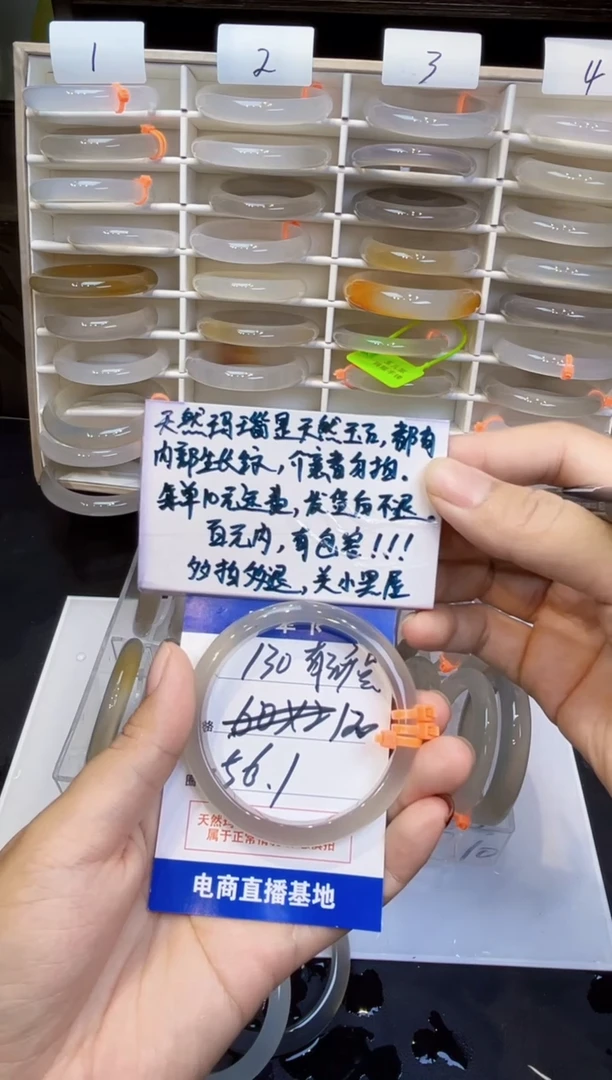 1
2
3
4
天然玛瑙是天然玉石，都有
内部生长纹，介意者勿拍.
每单10元运费，发货后不退.
百元内，有包容!!!
多拍多退，关小黑屋
130 有矿点
格 120
56.1
天然玛
属于正常情
电商直播基地
10